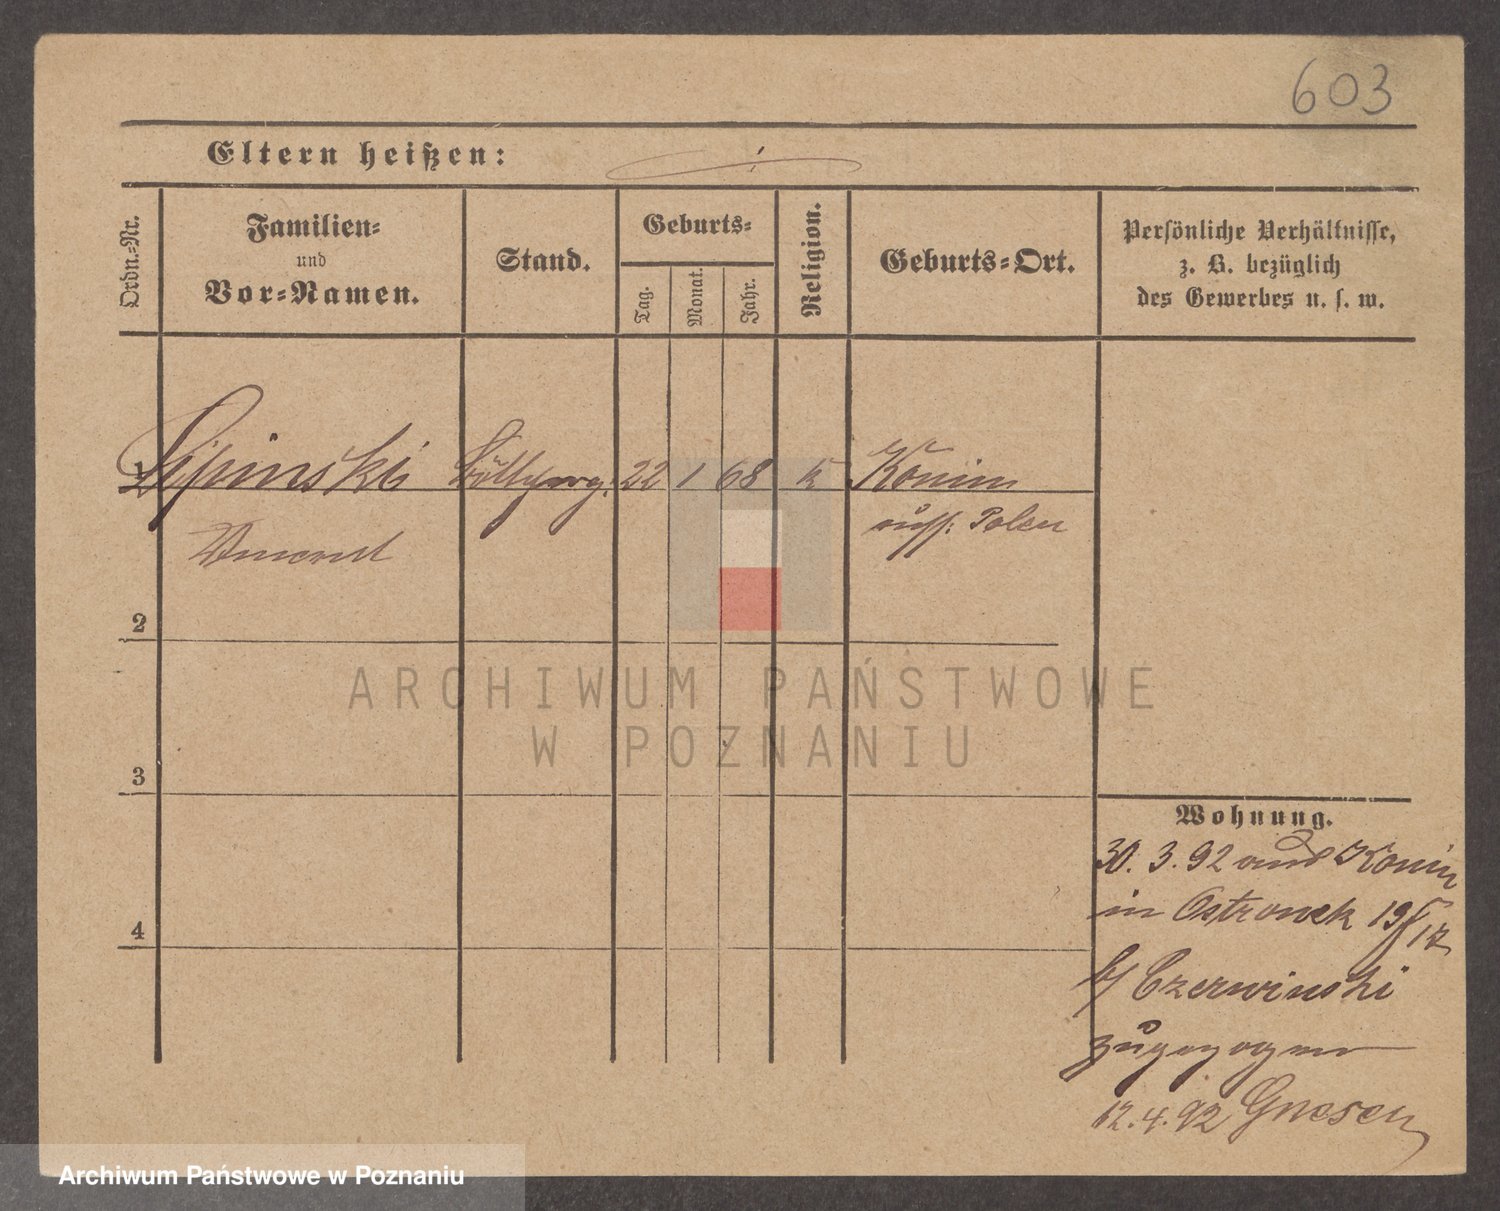 603
Eltern heißen:
Ordn.-Nr.
Familien-
und
Vor-Namen.
Stand.
Geburts-
Tag.
Monat.
Jahr.
Religion.
Geburts-Ort.
Persönliche Verhältnisse,
z. B. bezüglich
des Gewerbes u. s. w.
1 Lipinski 22 1 68 k Konin
Vincent russ: Polen
2
ARCHIWUM PAŃSTWOWE
W POZNANIU
3
Wohnung.
30. 3. 92 aus Konin
in Ostrowek 19/17
b/ Czerwinski
zugezogen
4
12. 4. 92 Gnesen
Archiwum Państwowe w Poznaniu